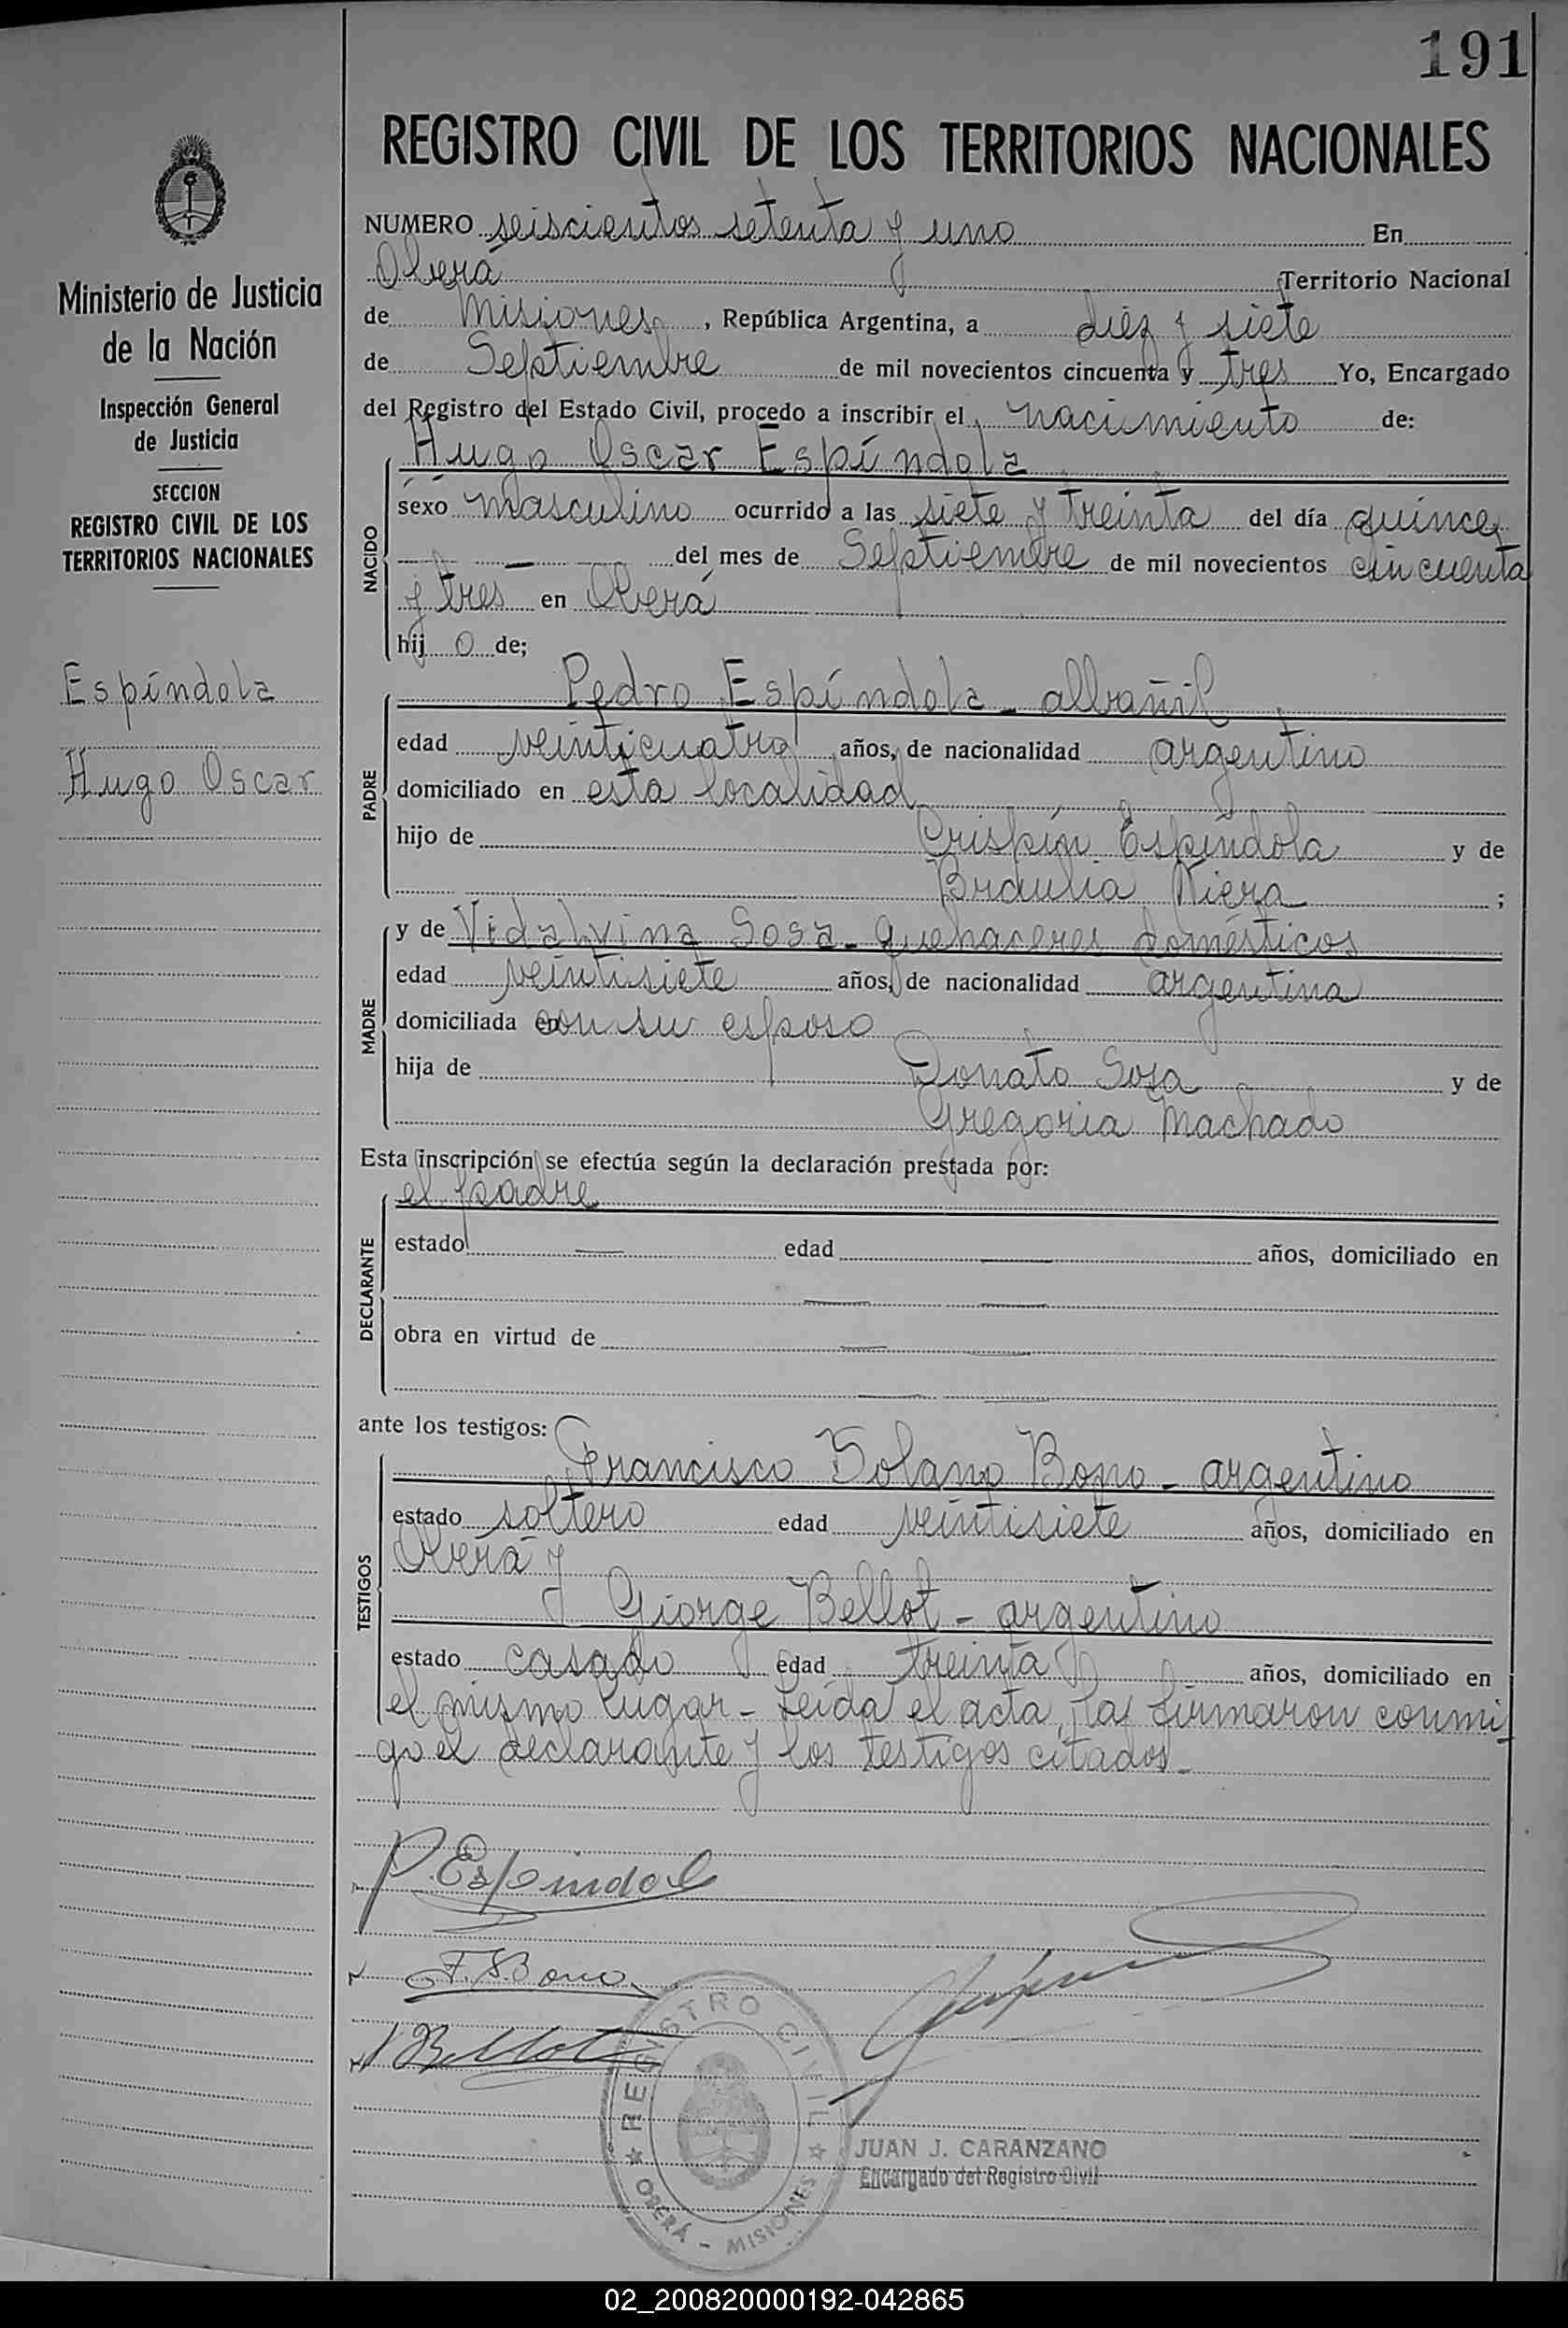 191
REGISTRO CIVIL DE LOS TERRITORIOS NACIONALES
Ministerio de Justicia
de la Nación
Inspección General
de Justicia
SECCION
REGISTRO CIVIL DE LOS
TERRITORIOS NACIONALES
Espíndola
Hugo Oscar
NUMERO seiscientos setenta y uno En
Oberá Territorio Nacional
de Misiones, República Argentina, a diez y siete
de Septiembre de mil novecientos cincuenta y tres Yo, Encargado
del Registro del Estado Civil, procedo a inscribir el nacimiento de:
Hugo Oscar Espíndola
NACIDO
sexo masculino ocurrido a las siete y treinta del día quince
— del mes de Septiembre de mil novecientos cincuenta
y tres en Oberá
hij o de;
Pedro Espíndola - albañil
PADRE
edad veinticuatro años, de nacionalidad argentino
domiciliado en esta localidad
hijo de Crispín Espíndola y de
Braulia Riera ;
MADRE
y de Vidalvina Sosa - quehaceres domésticos
edad veintisiete años, de nacionalidad argentina
domiciliada en con su esposo
hija de Donato Sosa y de
Gregoria Machado
Esta inscripción se efectúa según la declaración prestada por:
el padre
DECLARANTE
estado — edad — años, domiciliado en
— —
obra en virtud de — —
— —
ante los testigos:
Francisco Solano Bono - argentino
TESTIGOS
estado soltero edad veintisiete años, domiciliado en
Oberá y
Giorge Bellot - argentino
estado casado edad treinta años, domiciliado en
el mismo lugar - Leída el acta, la firmaron conmi
go el declarante y los testigos citados -
P. Espindola
F. S. Bono
Bellot
REGISTRO CIVIL
OBERÁ - MISIONES
JUAN J. CARANZANO
Encargado del Registro Civil
02_200820000192-042865